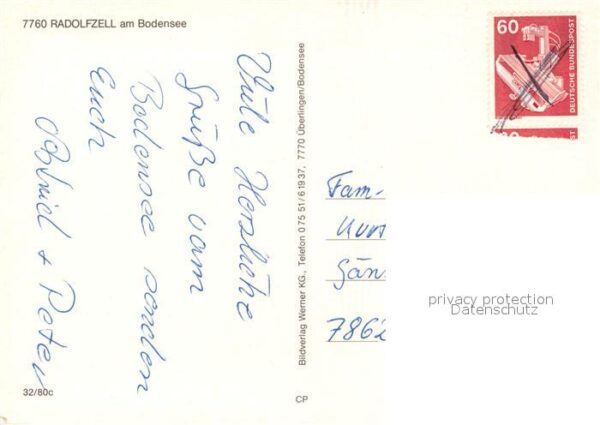 7760 RADOLFZELL am Bodensee
Viele Herzliche
Grüße vom
Bodensee senden
Euch
Astrid + Peter
32/80c
Bildverlag Werner KG., Telefon 0 75 51/6 19 37, 7770 Überlingen/Bodensee
CP
60
DEUTSCHE BUNDESPOST
Fam.
Kurt
Gän
7862
privacy protection
Datenschutz